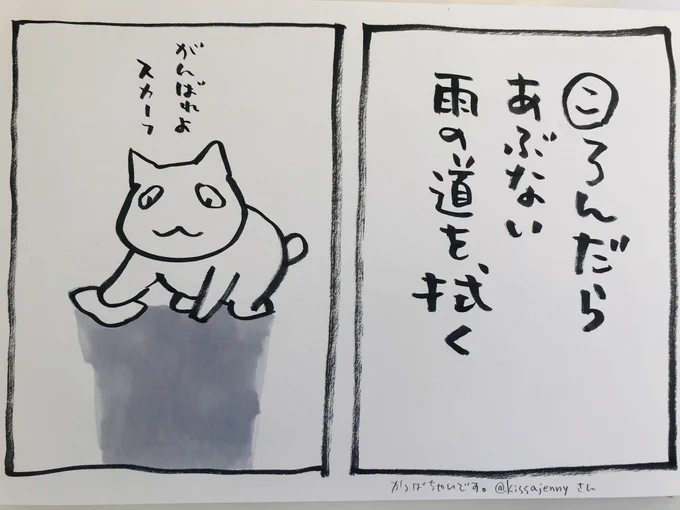 ころんだら
あぶない
雨の道を、拭く
がんばれよ
スカーフ
かっぱちゃいです。@kissajenny さん